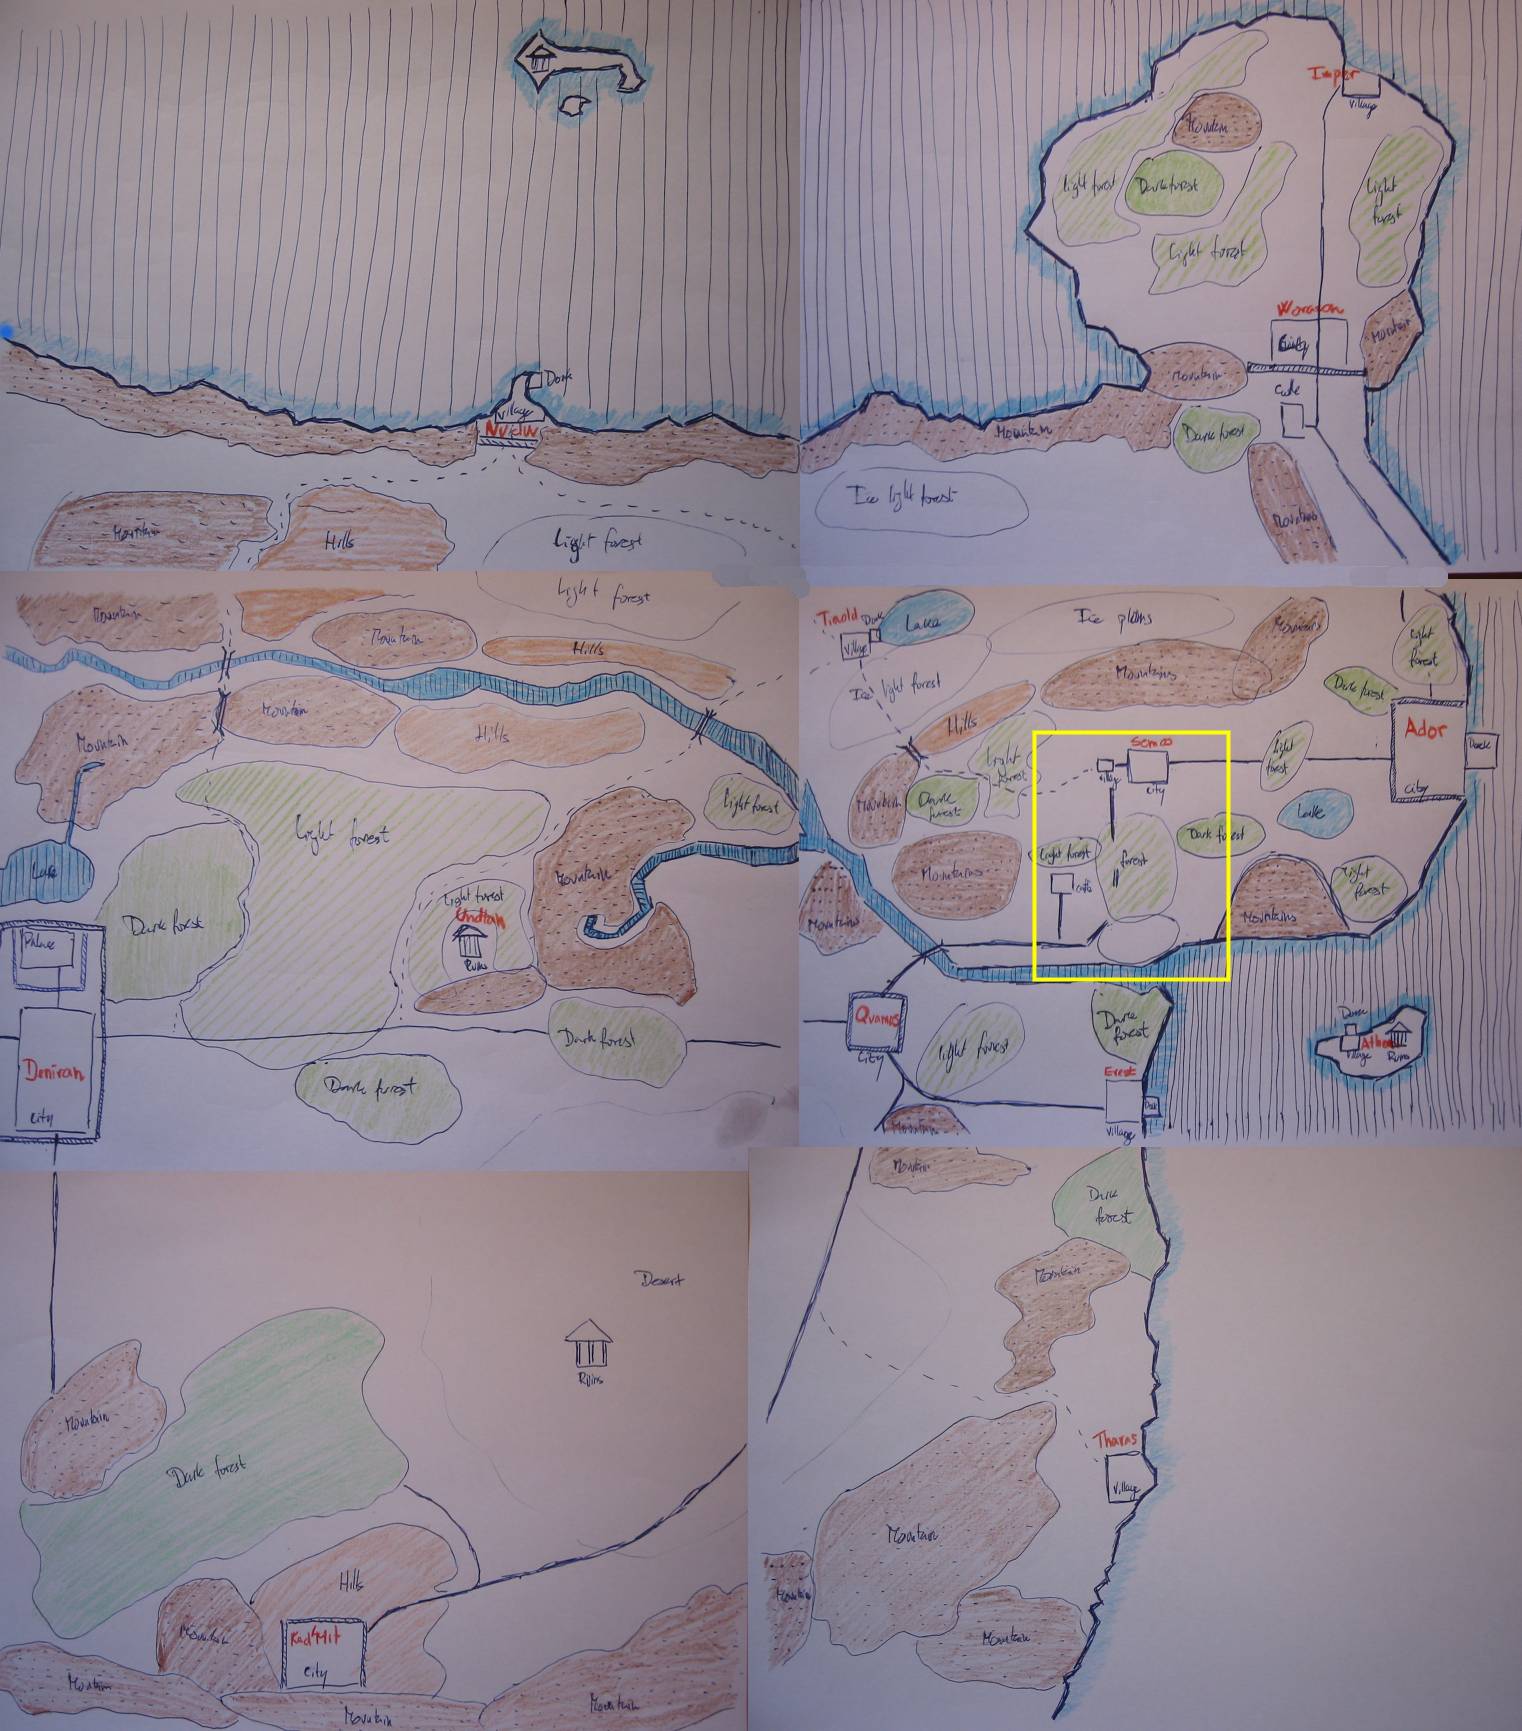 Dork
village
Mountain
Hills
Light forest
Imper
village
Mountain
light forest
Dark forest
Light
forest
Light forest
Worason
Mountain
Mountain
Mountain
Dark forest
Ice light forest
Mountains
Mountain
Light forest
Mountain
Hills
Mountain
Hills
Mountain
Light forest
Light forest
Lake
Dark forest
Light forest
Undtan
Ruins
Mountain
Palace
Deniran
City
Dark forest
Dark forest
Tinold
Dork
village
Lake
Ice plains
Mountains
Light
forest
Mountains
Ice light forest
Dark forest
Hills
Light
forest
Semco
village
City
Light
forest
Ador
Dock
City
Mountain
Dark
forest
Lake
Mountains
Light forest
forest
Dark forest
Mountains
Mountains
Light
forest
Quamos
City
light forest
Dark
forest
Erest
village
Mountain
village
Ruins
Desert
Ruins
Mountain
Dark forest
Hills
Mountain
City
Mountain
Mountain
Mountain
Mountain
Dark
forest
Mountain
Tharns
village
Mountain
Mountain
Mountain